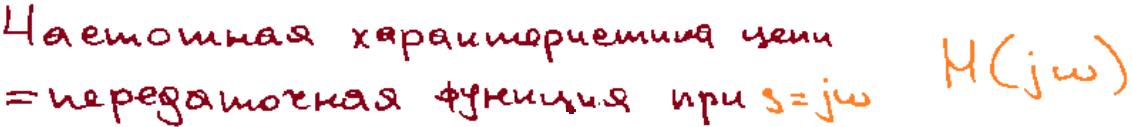 Частотная характеристика цепи H(jω)
=передаточная функция при s=jω